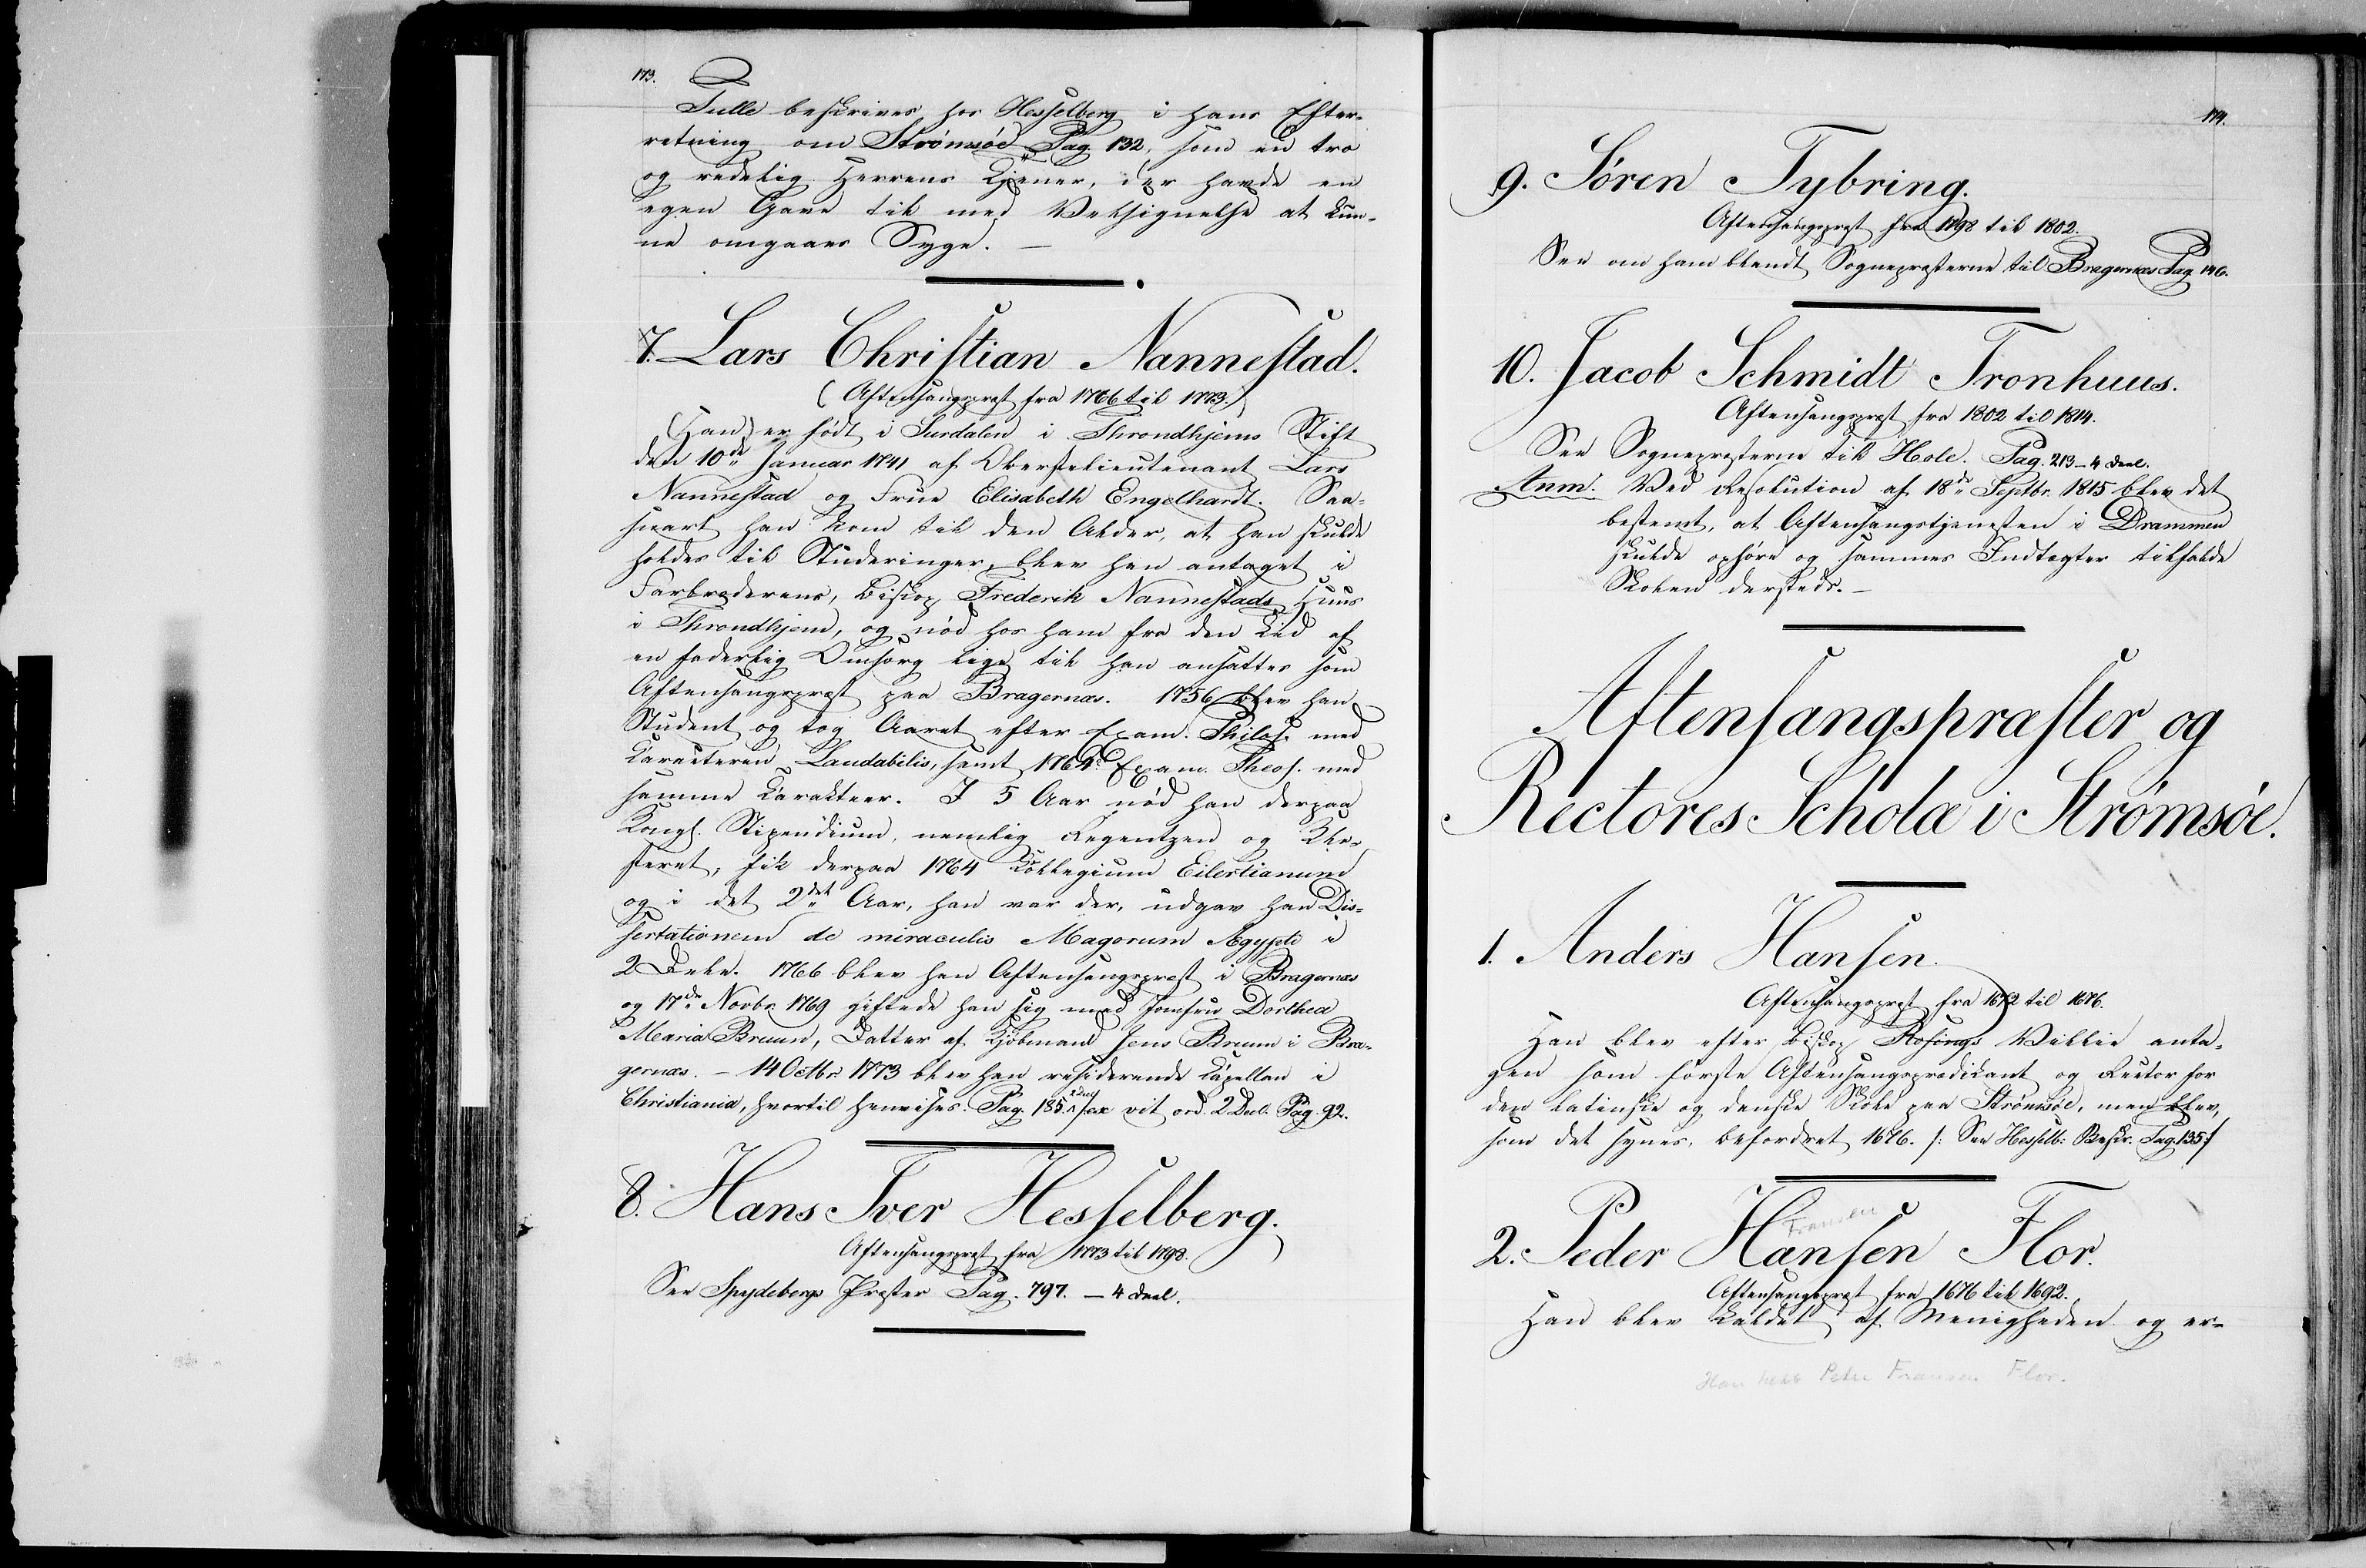 173.
Tulle beskrives hos Hesselberg i hans Efter-
retning om Strømsöe Pag. 132, som en tro
og redelig Herrens Tjener, der havde en
egen Gave til med Velsignelse at kun-
ne omgaaes Syge. —
7. Lars Christian Nannestad.
(Aftensangsprest fra 1766 til 1773.)
Han er født i Surdalen i Throndhjems Stift
den 10de Januar 1741 af Oberstelieutenant Lars
Nannestad og Frue Elisabeth Engelhardt. Saa-
snart han kom til den Alder, at han skulde
holdes til Studeringer, blev han antaget i
Farbroderens, Biskop Frederik Nannestads Huus
i Throndhjem, og nød hos ham fra den Tid af
en faderlig Omsorg lige til han ansattes som
Aftensangsprest paa Bragernæs. 1756 blev han
Student og tog Aaret efter Exam. Philos. med
Karakteren Laudabilis, samt Exam. Theol. med
samme Karakteer. I 5 Aar nød han derpaa
Kongl. Stipendium, nemlig Regentzen og Klo-
steret, fik derpaa 1764 Kollegium Eilersianum
og i det 2det Aar, han var der, udgav han Dis-
sertationem de miraculis Magorum Ægypti i
2 Dele. 1766 blev han Aftensangsprest i Bragernæs
og 17de Novbr. 1769 giftede han sig med Jomfru Dorthea
Maria Bruun, Datter af Kjøbmand Jens Bruun i Bra-
gernæs. — 14 Octbr. 1773 blev han residerende Kapellan i
Christiania, hvortil henvises. Pag. 185. vit ord. 2 Deel. Pag. 92.
8. Hans Iver Hesselberg.
Aftensangsprest fra 1773 til 1798.
See Spydebergs Prester Pag. 797. — 4 Deel.
174.
9. Søren Tybring.
Aftensangsprest fra 1798 til 1802.
See om ham blandt Sognepresterne til Bragernæs Pag. 146.
10. Jacob Schmidt Tronhuus.
Aftensangsprest fra 1802 til 1814.
See Sognepresterne til Hole. Pag. 213 – 4 Deel.
Anm. Ved Resolution af 18de Septbr. 1815 blev det
bestemt, at Aftensangstjenesten i Drammen
skulde ophøre og sammes Indtægter tilfalde
Skolen dersteds. —
Aftensangspræster og
Rectores Scholæ i Strømsöe.
1. Anders Hansen.
Aftensangsprest fra 1672 til 1676.
Han blev efter Biskop Rosings Villie anta-
gen som første Aftensangsprædikant og Rector for
den latinske og danske Skole paa Strømsöe, men blev,
som det synes, befordret 1676. /: See Hesselb: Beskr. Pag. 135 :/
Fransen
2. Peder Hansen Flor.
Aftensangsprest fra 1676 til 1692.
Han blev kaldet af Menigheden og er-
Han hedd Peder Fransen Flor.